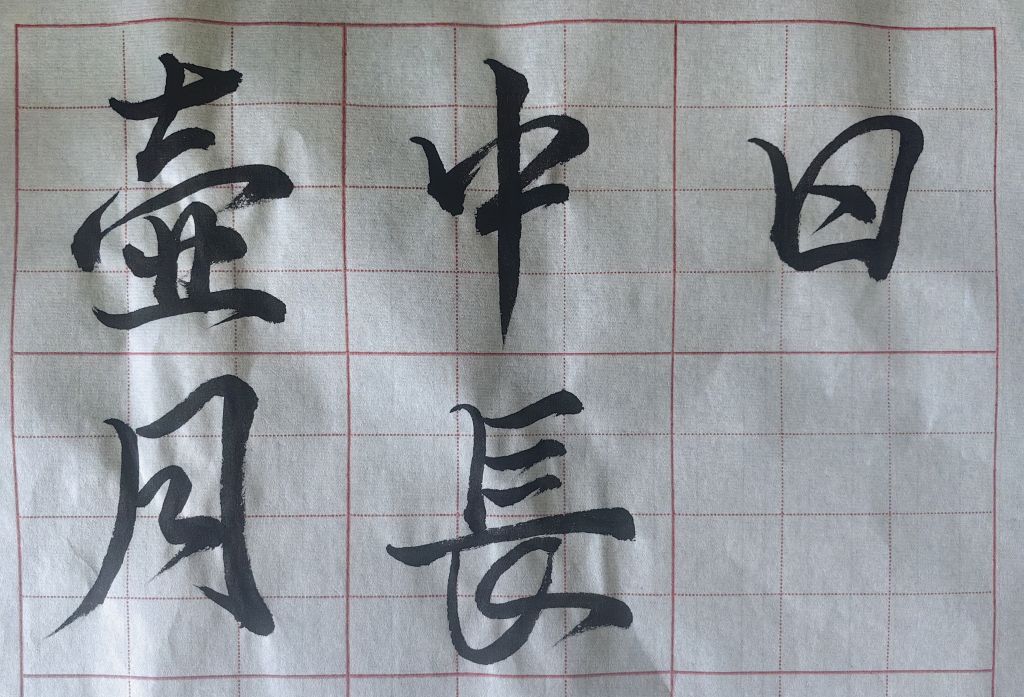 壺中日
月長